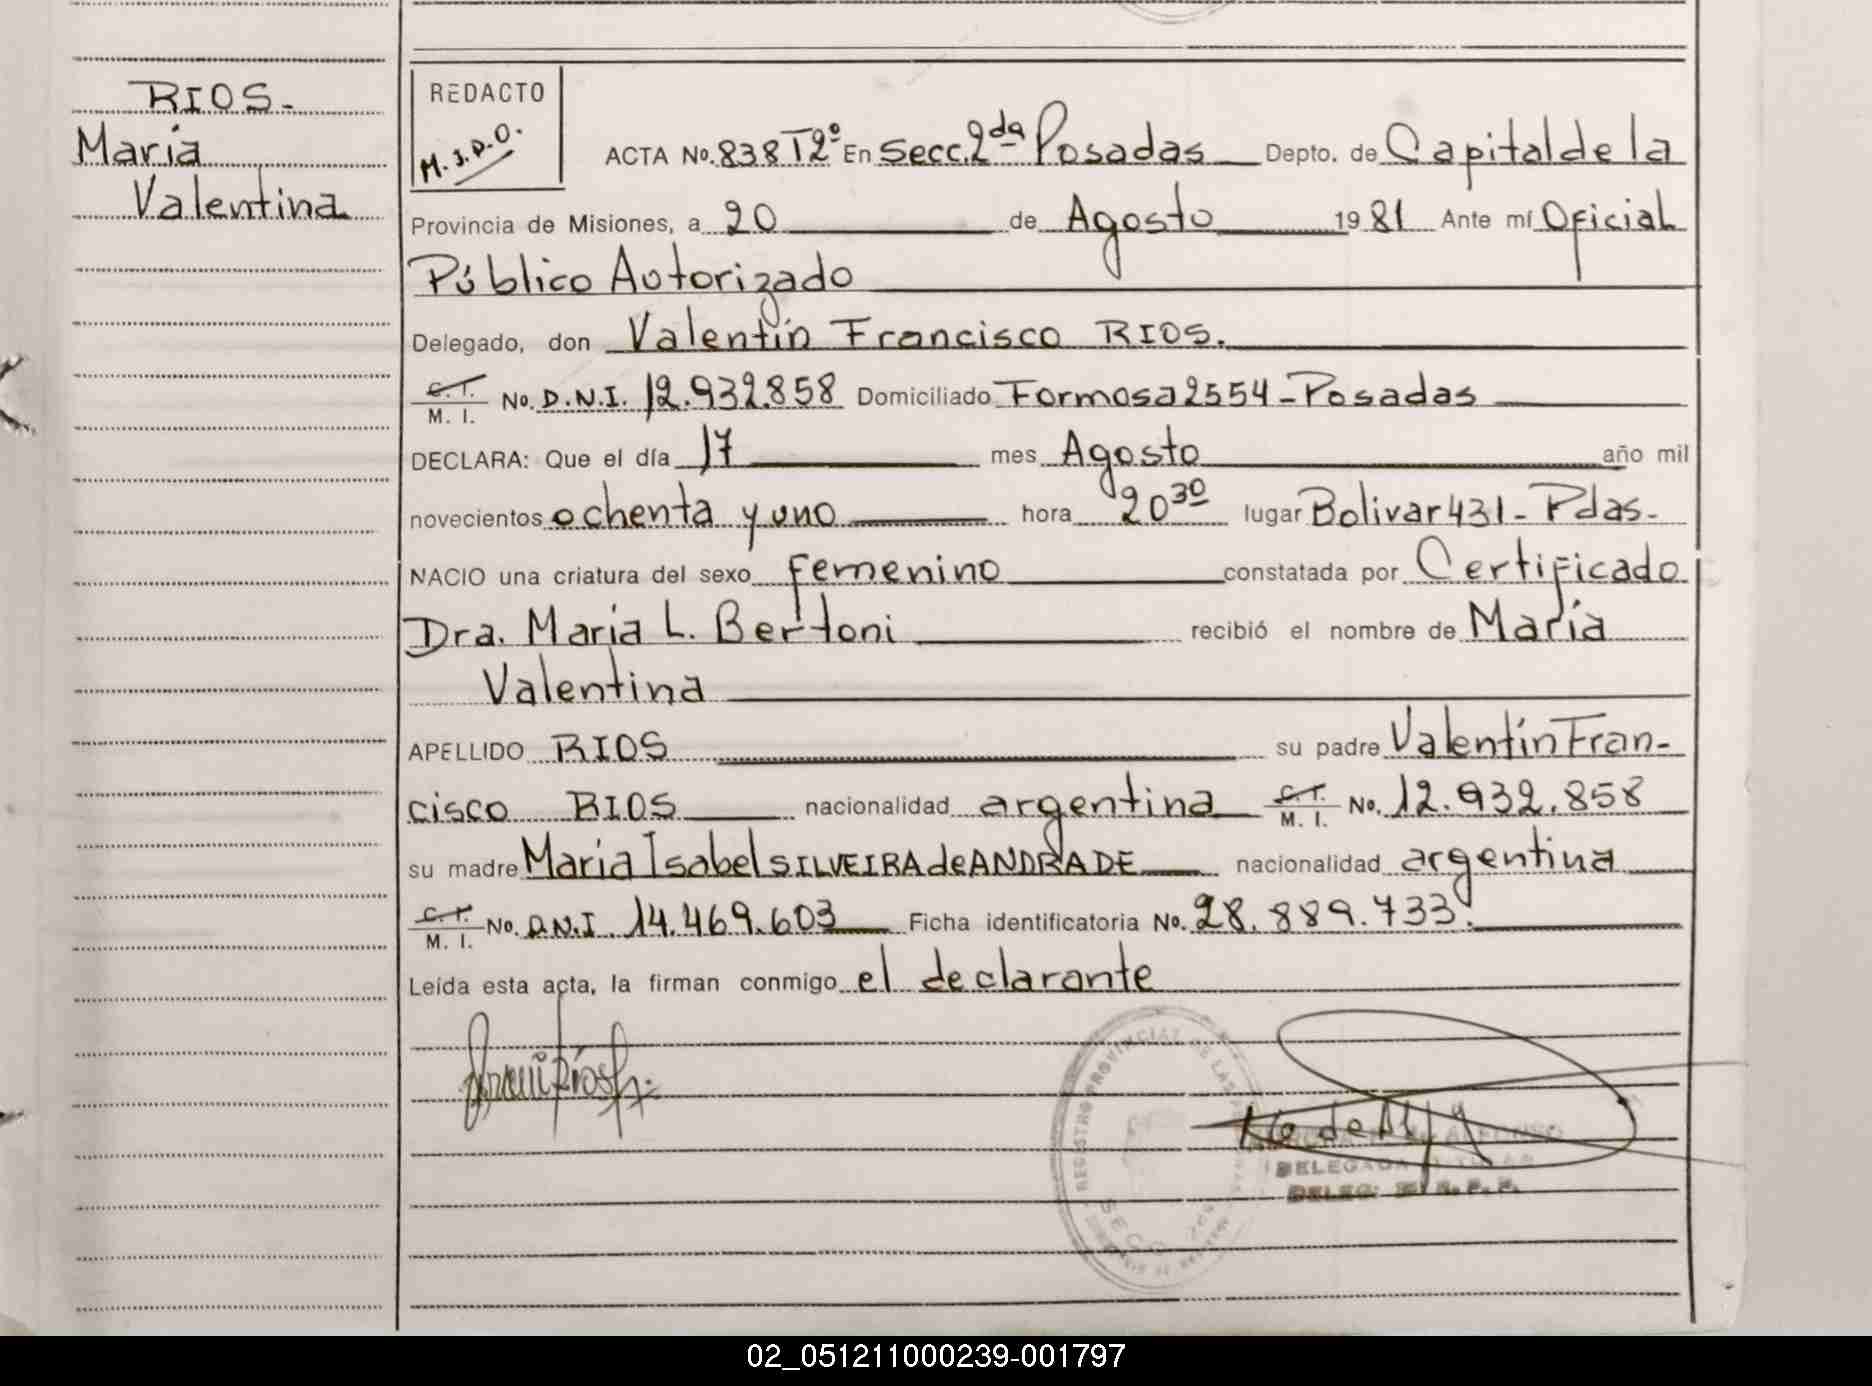 RIOS-
María
Valentina
REDACTO
M.J.D.O.
ACTA No. 838 T2° En Secc. 2da Posadas Depto. de Capital de la
Provincia de Misiones, a 20 de Agosto 1981 Ante mí Oficial
Público Autorizado
Delegado, don Valentín Francisco RIOS.
C. I.
M. I. No. D.N.I. 12.932.858 Domiciliado Formosa 2554 - Posadas
DECLARA: Que el día 17 mes Agosto año mil
novecientos ochenta y uno hora 20 30 lugar Bolivar 431 - Pdas-
NACIO una criatura del sexo femenino constatada por Certificado
Dra. María L. Bertoni recibió el nombre de María
Valentina
APELLIDO RIOS su padre Valentín Fran-
cisco RIOS nacionalidad argentina C. I. M. I. No. 12.932.858
su madre María Isabel SILVEIRA de ANDRADE nacionalidad argentina
C. I.
M. I. No. D.N.I. 14.469.603 Ficha identificatoria No. 28.889.733.
Leída esta acta, la firman conmigo el declarante
REGISTRO PROVINCIAL DE LAS
SECC
DELEGADA TITULAR
02_051211000239-001797